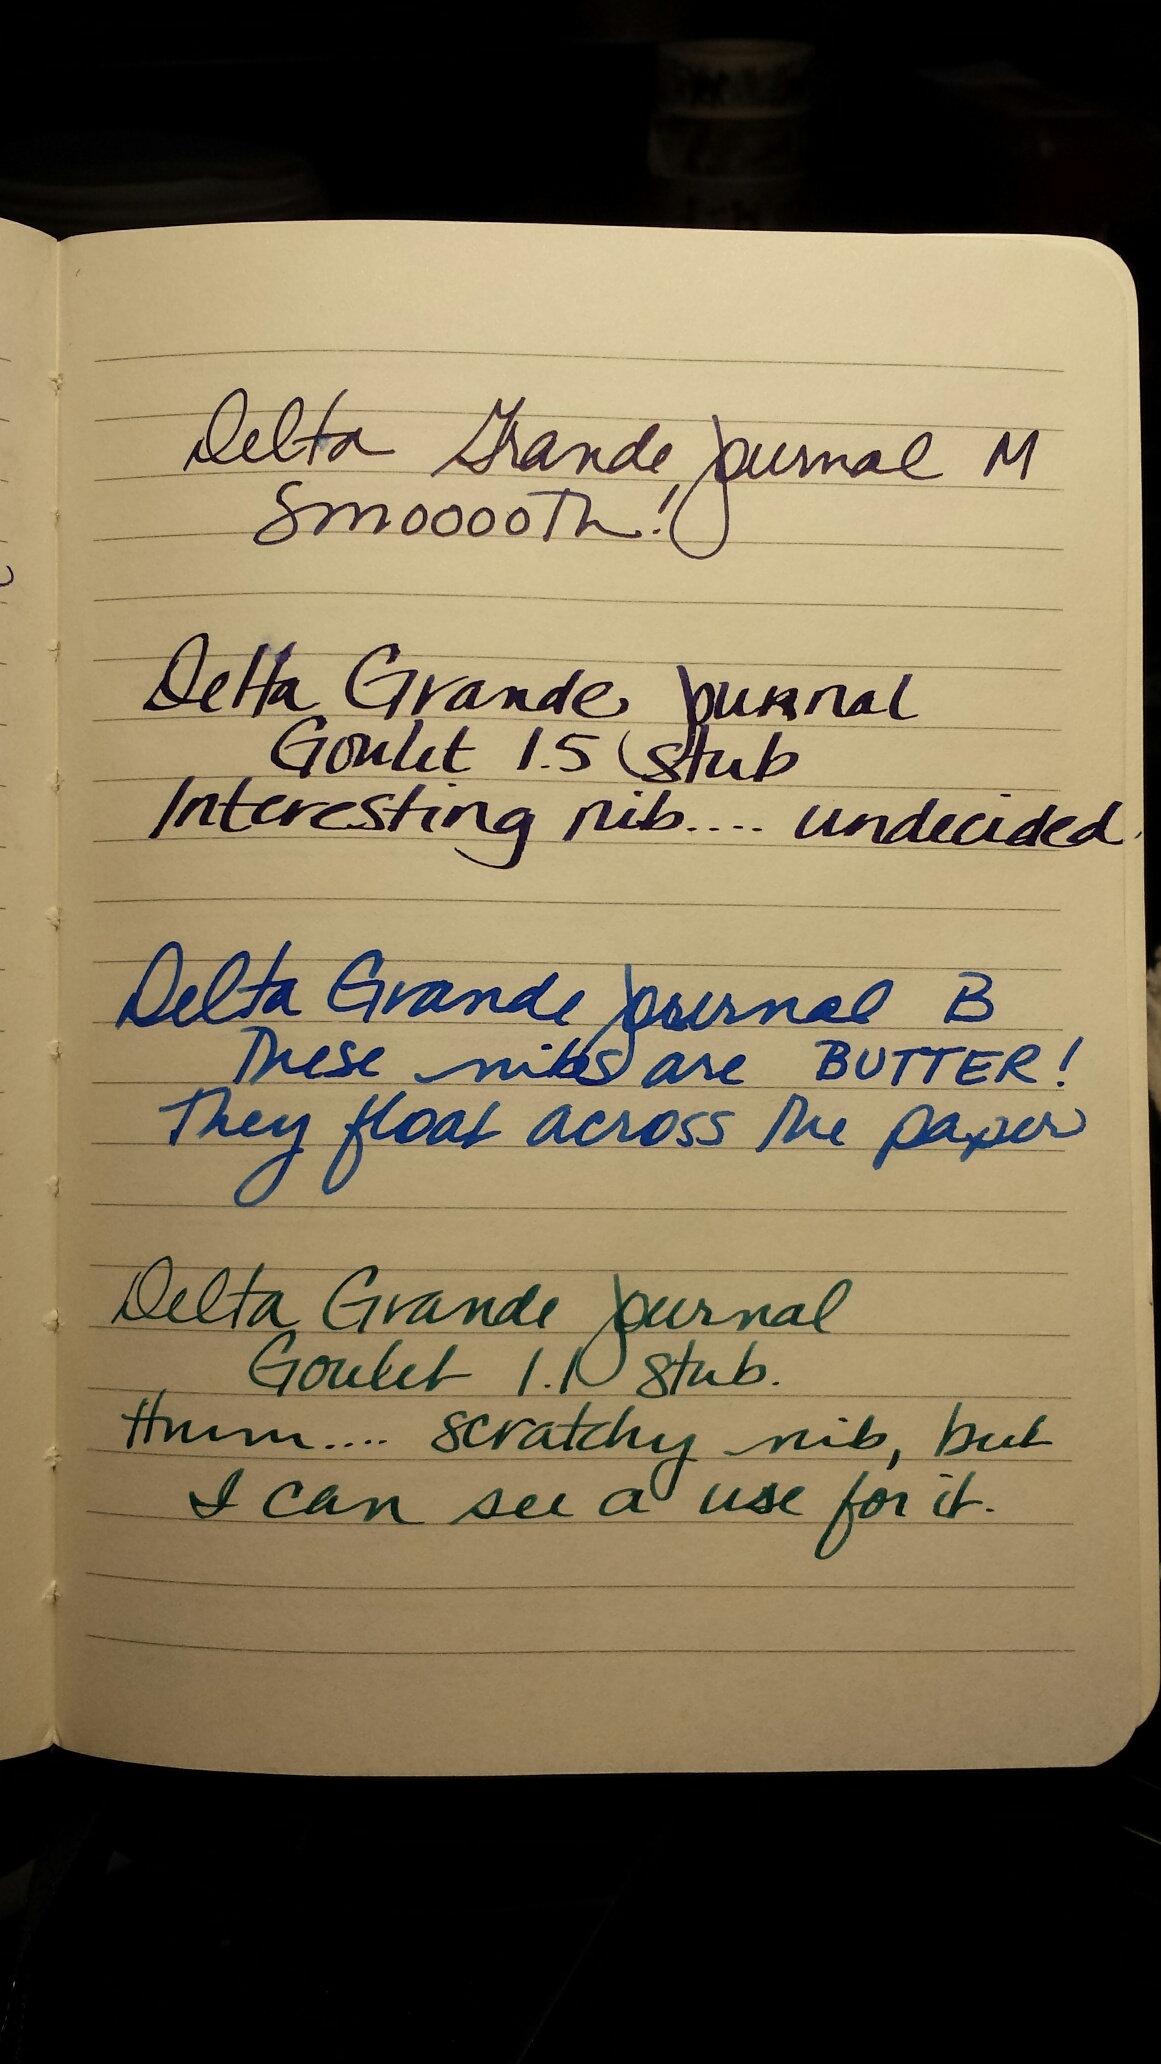 Delta Grande journal M
SmooooTh!
Delta Grande journal
Goulet 1.5 stub
Interesting nib.... undecided.
Delta Grande journal B
These nibs are BUTTER!
They float across the paper
Delta Grande journal
Goulet 1.1 stub.
Hmm.... scratchy nib, but
I can see a use for it.